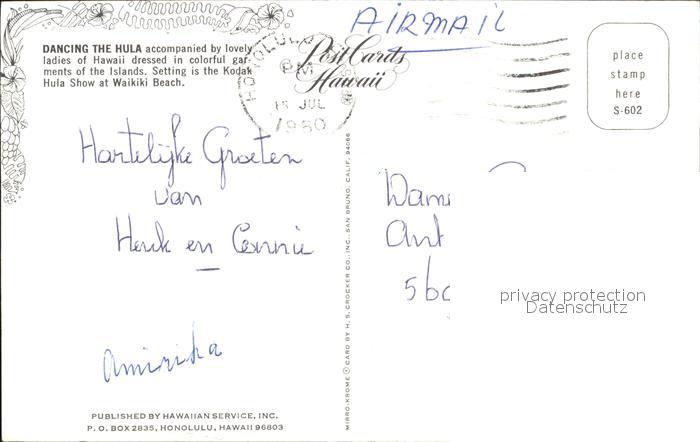 AIRMAIL
DANCING THE HULA accompanied by lovely
ladies of Hawaii dressed in colorful gar-
ments of the Islands. Setting is the Kodak
Hula Show at Waikiki Beach.
HONOLULU
PM
15 JUL
1980
Post Cards
Hawaii
place
stamp
here
S-602
Hartelijke Groeten
van
Henk en Connie
Amirika
Dam
Ant
5bc
privacy protection
Datenschutz
MIRRO-KROME © CARD BY H. S. CROCKER CO., INC., SAN BRUNO, CALIF. 94066
PUBLISHED BY HAWAIIAN SERVICE, INC.
P. O. BOX 2835, HONOLULU, HAWAII 96803